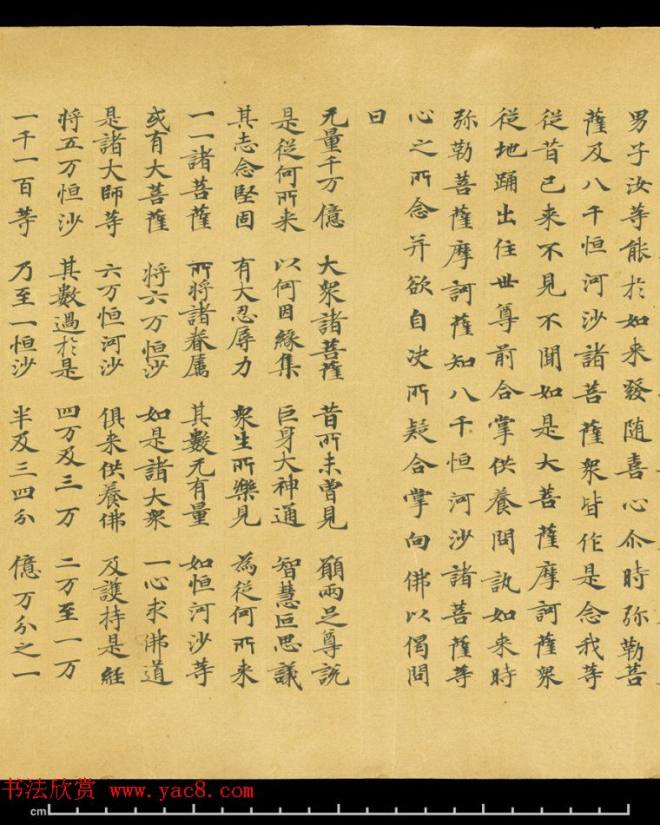 男子汝等能於如来發随喜心尒時弥勒菩
薩及八千恒河沙諸菩薩衆皆作是念我等
従昔已来不見不聞如是大菩薩摩訶薩衆
従地踊出住世尊前合掌供養問訊如来時
弥勒菩薩摩訶薩知八千恒河沙諸菩薩等
心之所念并欲自决所疑合掌向佛以偈問
曰
无量千万億 大衆諸菩薩 昔所未曽見 願兩足尊說
是従何所来 以何因緣集 巨身大神通 智慧叵思議
其志念堅固 有大忍辱力 衆生所樂見 為従何所来
一一諸菩薩 所將諸眷属 其數无有量 如恒河沙等
或有大菩薩 將六万恒沙 如是諸大衆 一心求佛道
是諸大師等 六万恒河沙 俱来供養佛 及護持是経
將五万恒沙 其數過於是 四万及三万 二万至一万
一千一百等 乃至一恒沙 半及三四分 億万分之一
书法欣赏 www.yac8.com
cm